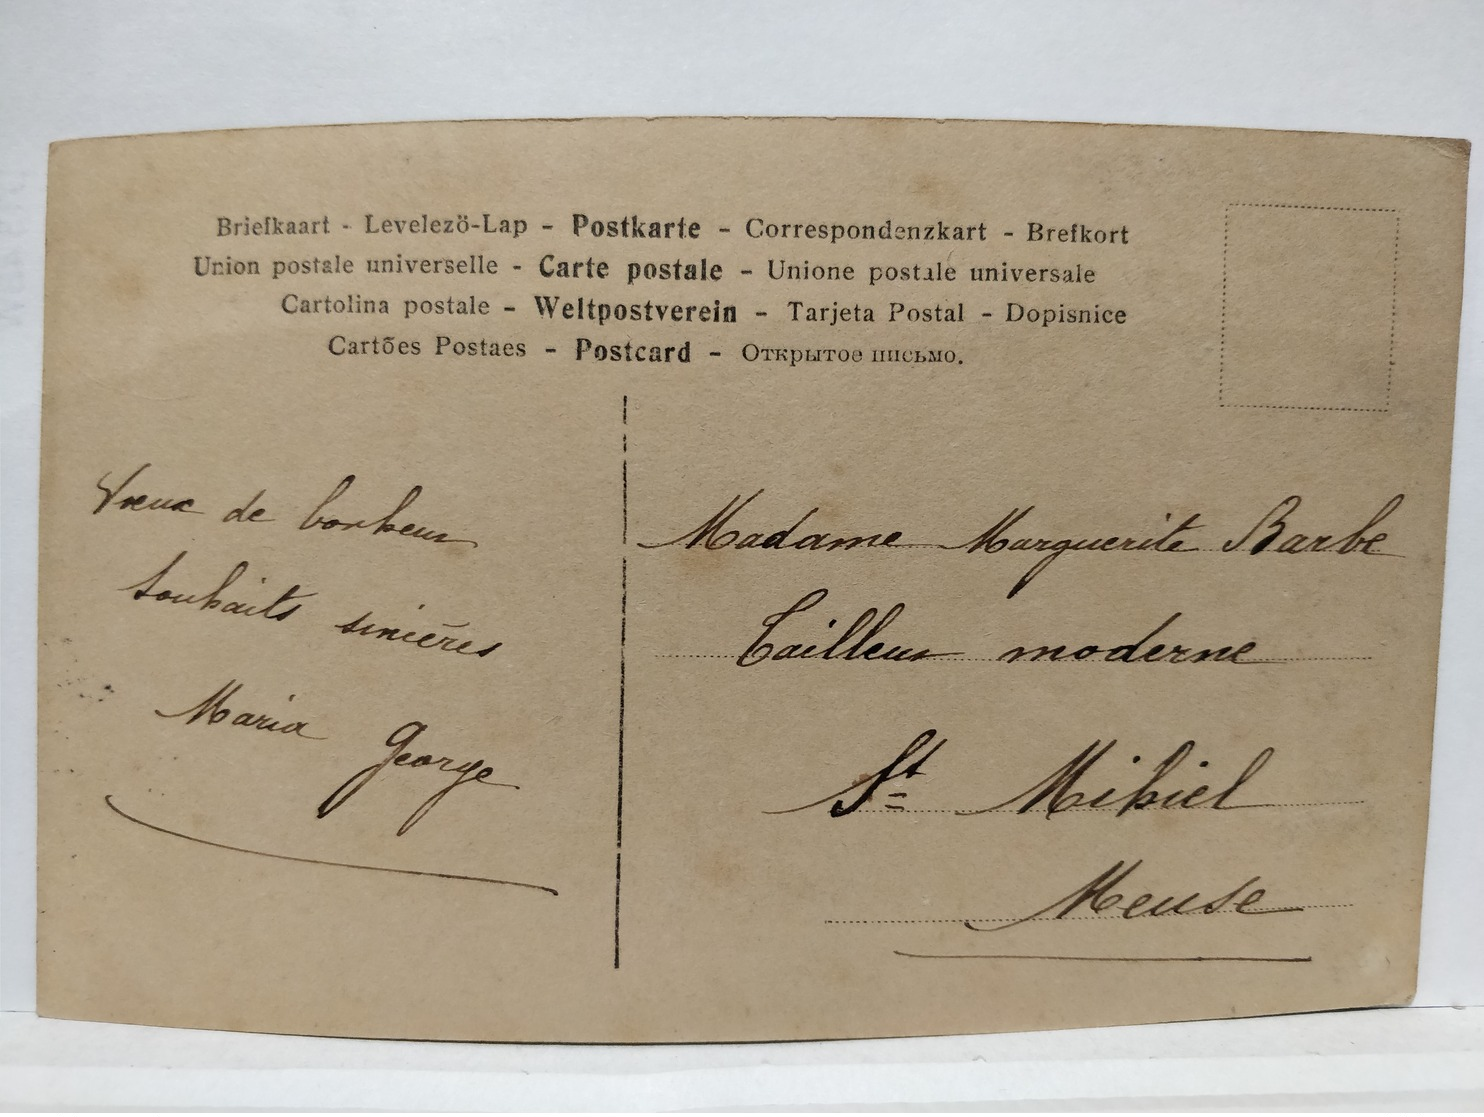 Briefkaart - Levelezö-Lap - Postkarte - Correspondenzkart - Brefkort
Union postale universelle - Carte postale - Unione postale universale
Cartolina postale - Weltpostverein - Tarjeta Postal - Dopisnice
Cartões Postaes - Postcard - Открытое письмо.
Vœux de bonheur
Souhaits sincères
Maria George
Madame Marguerite Barbe
Tailleur moderne
St Mihiel
Meuse